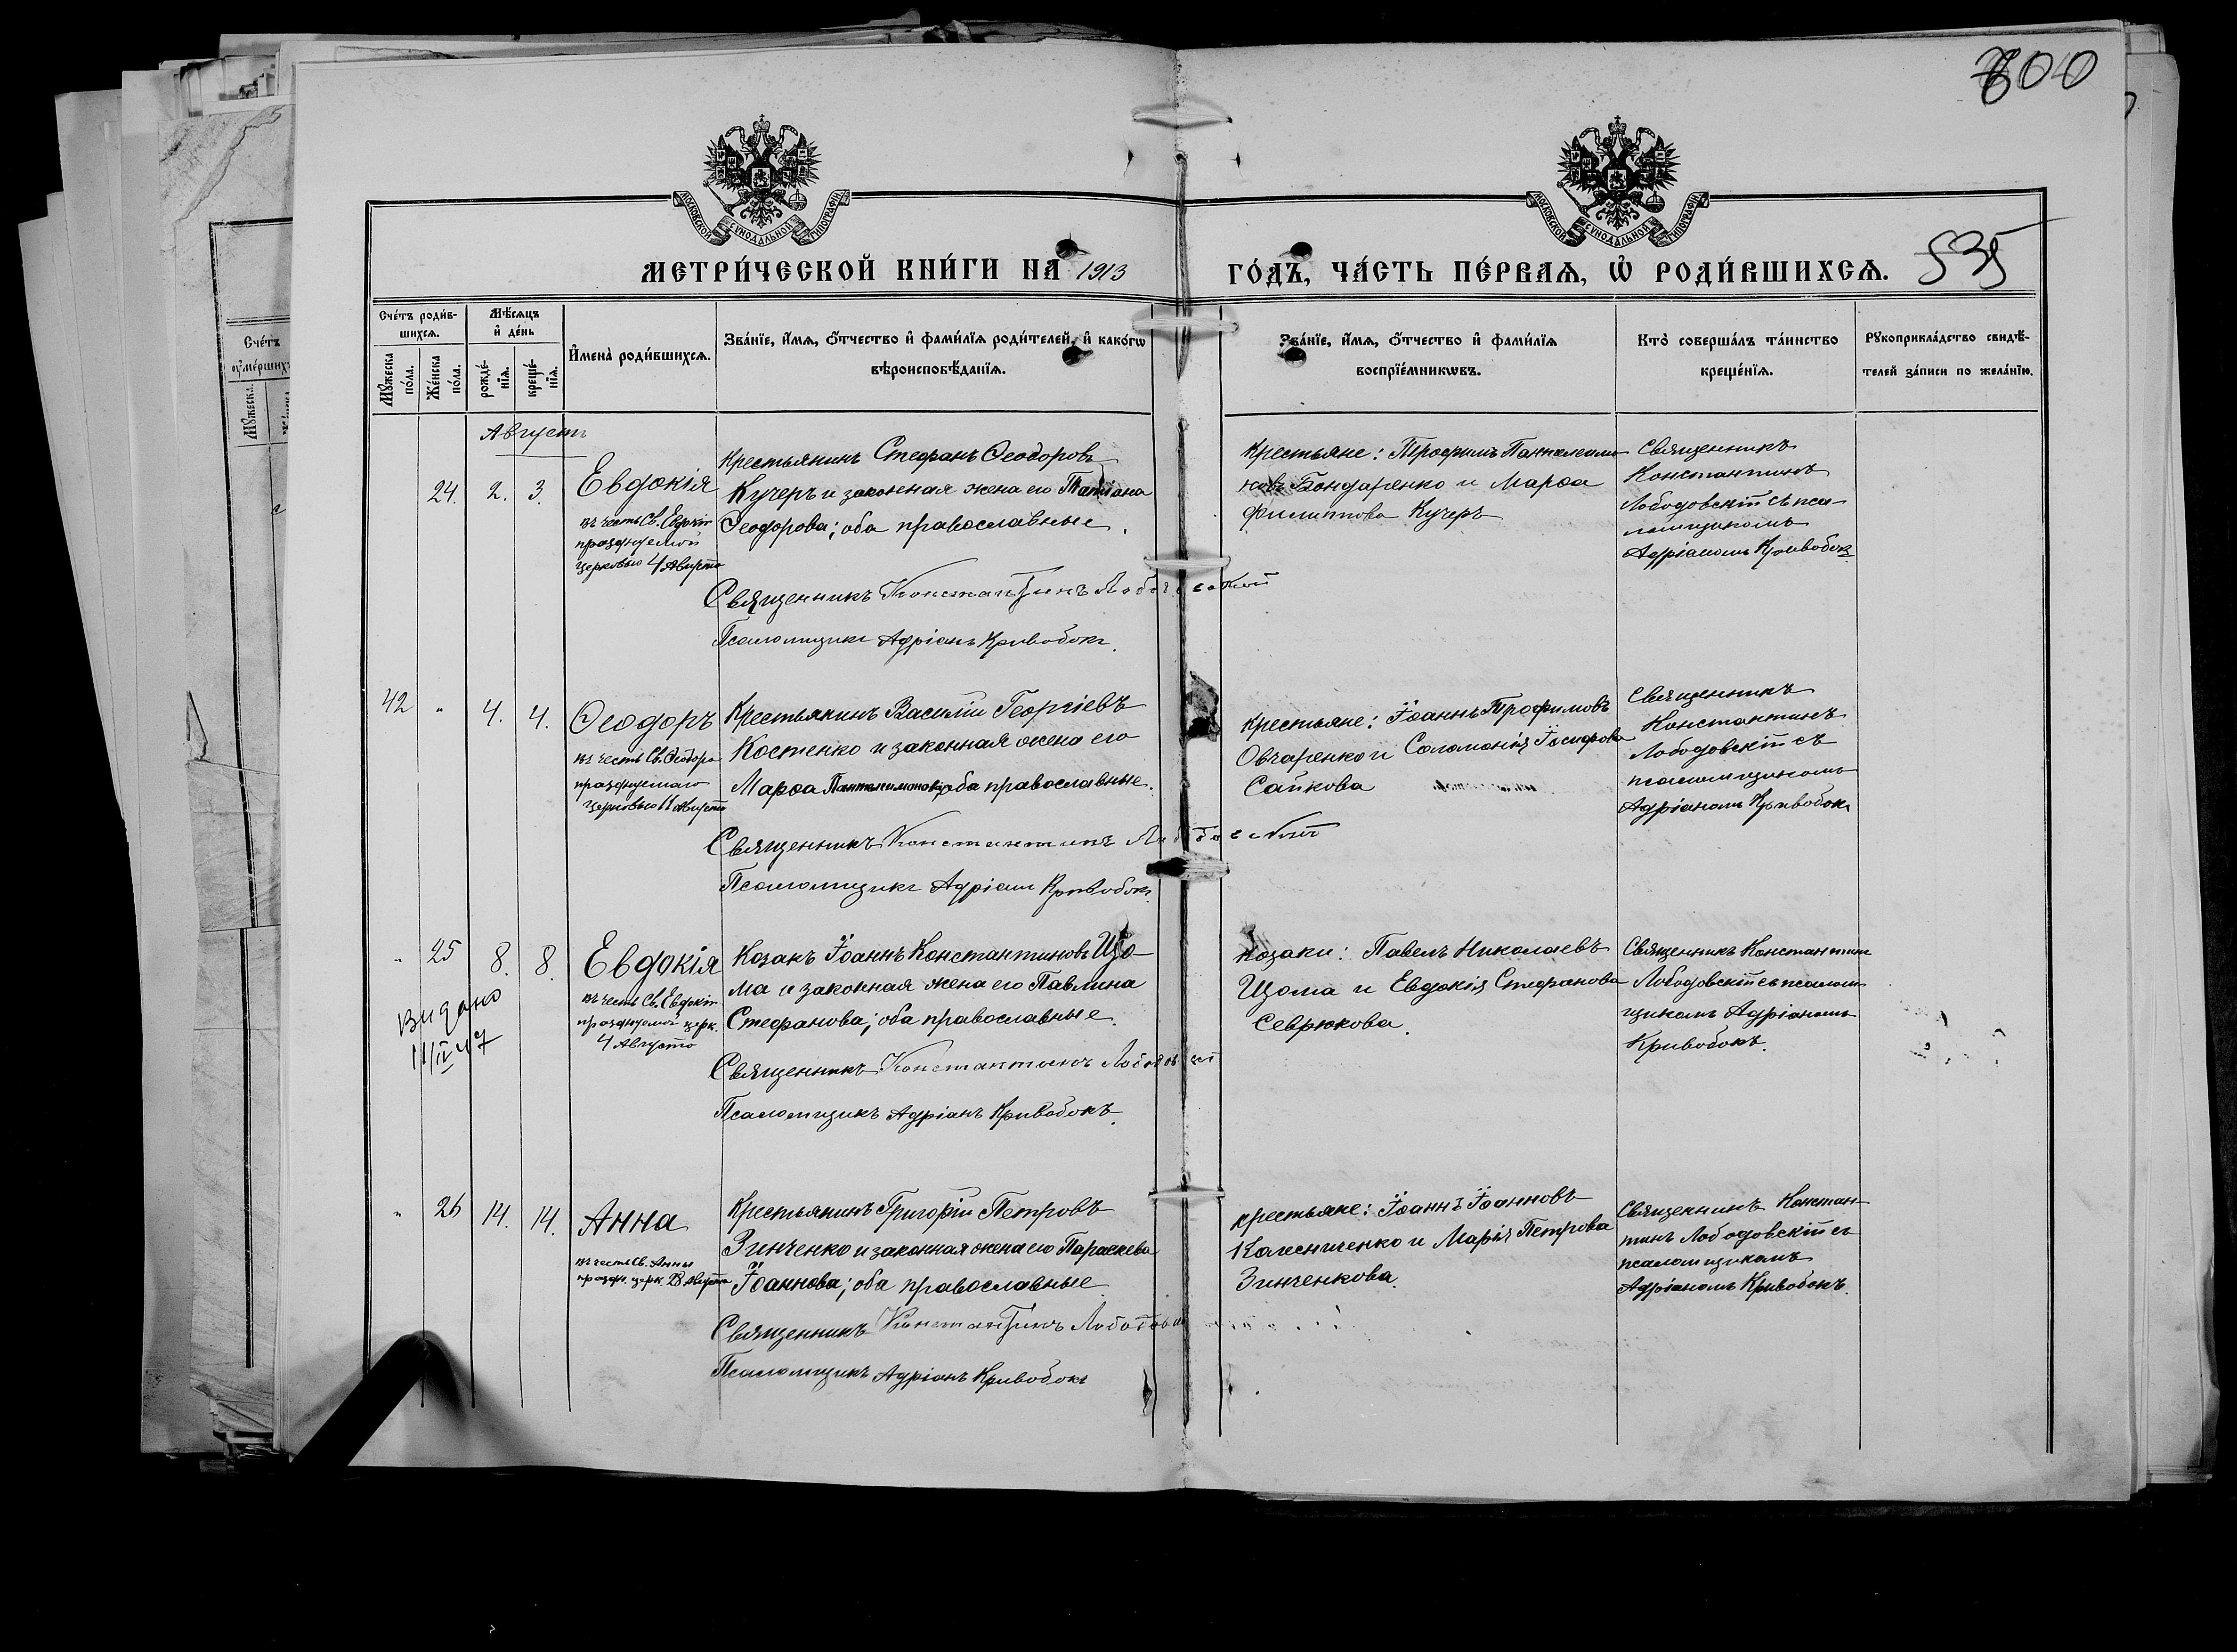 600
МОСКОВСКОЙ СѴНОДАЛЬНОЙ ТИПОГРАФІИ
МОСКОВСКОЙ СѴНОДАЛЬНОЙ ТИПОГРАФІИ
МЕТРИ́ЧЕСКОЙ КНИ́ГИ НА 1913
ГО́ДЪ, ЧА́СТЬ ПЕ́РВАѦ, Ѡ РОДИ́ВШИХСѦ.
535
Сче́тъ роди́в-
шихсѧ.
Мꙋ́жеска
по́ла.
Же́нска
по́ла.
Мѣ́сѧцъ
и҆ де́нь
рожде́-
нїѧ.
креще́-
нїѧ.
И҆мена̀ роди́вшихсѧ.
Зва́нїе, и҆́мѧ, ѻ҆́тчество и҆ фами́лїѧ роди́телей, и҆ како́гѡ
вѣроисповѣ́данїѧ.
Зва́нїе, и҆́мѧ, ѻ҆́тчество и҆ фами́лїѧ
воспрїе́мникѡвъ.
Кто̀ соверша́лъ та́инство
креще́нїѧ.
Рꙋкоприкла́дство свидѣ́-
телей за́писи по жела́нїю.
Сче́тъ
Мꙋ́жеска
Августъ
24. 2. 3.
Евдокія
въ честь Св. Евдокіи
празднуемой
церковью 4 Августа
Крестьянинъ Стефанъ Ѳеодоровъ
Кучеръ и законная жена его Татіана
Ѳеодорова; оба православные.
Священникъ Константинъ Лободовскій
Псаломщикъ Адріанъ Кривобокъ.
Крестьяне: Трофимъ Пантелеимо-
новъ Бондаренко и Марѳа
Филиппова Кучеръ
Священникъ
Константинъ
Лободовскій съ пса-
ломщикомъ
Адріаномъ Кривобокъ
42 " 4. 4.
Ѳеодоръ
въ честь Св. Ѳеодора
празднуемаго
церковью 11 Августа
Крестьянинъ Василій Георгіевъ
Костенко и законная жена его
Марѳа Пантелимонова; оба православные.
Священникъ Константинъ Лободовскій
Псаломщикъ Адріанъ Кривобокъ.
Крестьяне: Іоаннъ Трофимовъ
Овчаренко и Саломонія Іосифова
Сайкова
Священникъ
Константинъ
Лободовскій съ
псаломщикомъ
Адріаномъ Кривобокъ
" 25 8. 8.
Видано
11/IV 47
Евдокія
въ честь Св. Евдокіи
празднуемой церк.
4 Августа
Козакъ Іоаннъ Константиновъ Щo-
ма и законная жена его Павлина
Стефанова; оба православные.
Священникъ Константинъ Лободовскій
Псаломщикъ Адріанъ Кривобокъ.
Козаки: Павелъ Николаевъ
Щома и Евдокія Стефанова
Севрюкова.
Священникъ Константинъ
Лободовскій съ псалом-
щикомъ Адріаномъ
Кривобокъ.
" 26 14. 14.
Анна
въ честь Св. Анны
праздн. церк. 28 Августа
Крестьянинъ Григорій Петровъ
Зинченко и законная жена его Параскева
Іоаннова; оба православные.
Священникъ Константинъ Лободовскій
Псаломщикъ Адріанъ Кривобокъ
Крестьяне: Іоаннъ Іоанновъ
Колесниченко и Марія Петрова
Зинченкова.
Священникъ Констан-
тинъ Лободовскій съ
псаломщикомъ
Адріаномъ Кривобокъ.